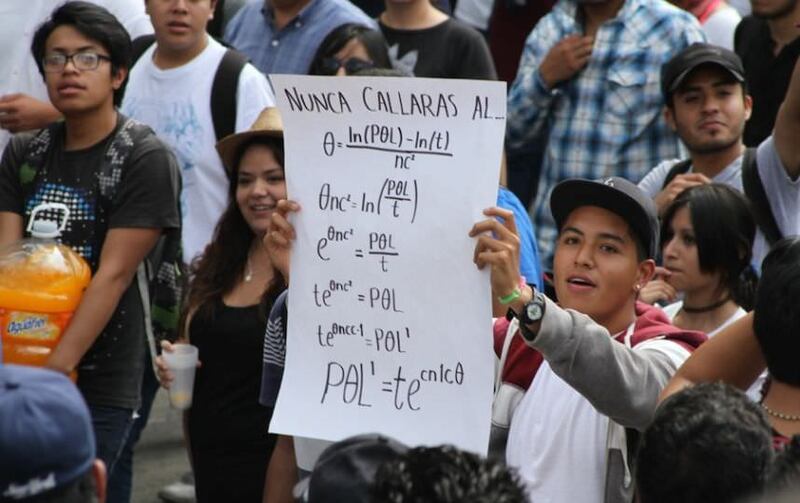 NUNCA CALLARAS AL...
θ = ln(PθL) - ln(t) / nc²
θnc² = ln(PθL / t)
e^θnc² = PθL / t
te^θnc² = PθL
te^θncc·1 = PθL¹
PθL¹ = te^cn1cθ
Aguafiel